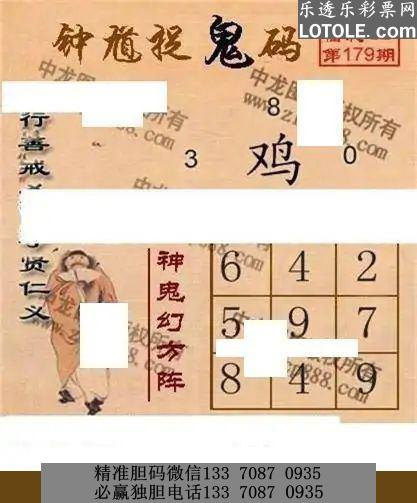 乐透乐彩票网
LOTOLE.COM
钟馗捉鬼码
第179期
8
3 鸡 0
行善戒
贤仁义
神鬼幻方阵
6 4 2
5 9 7
8 4 9
精准胆码微信133 7087 0935
必赢独胆电话133 7087 0935